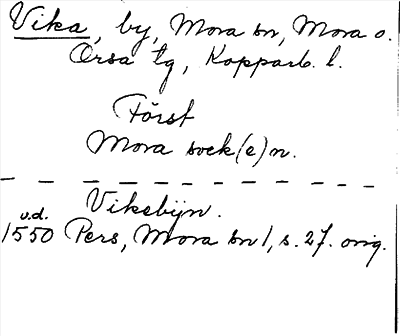 Vika, by, Mora sn, Mora o.
Orsa tg, Kopparb. l.
Först
Mora sock(e)n.
Vikebijn.
u.d.
1550 Pers, Mora sn 1, s. 27. orig.